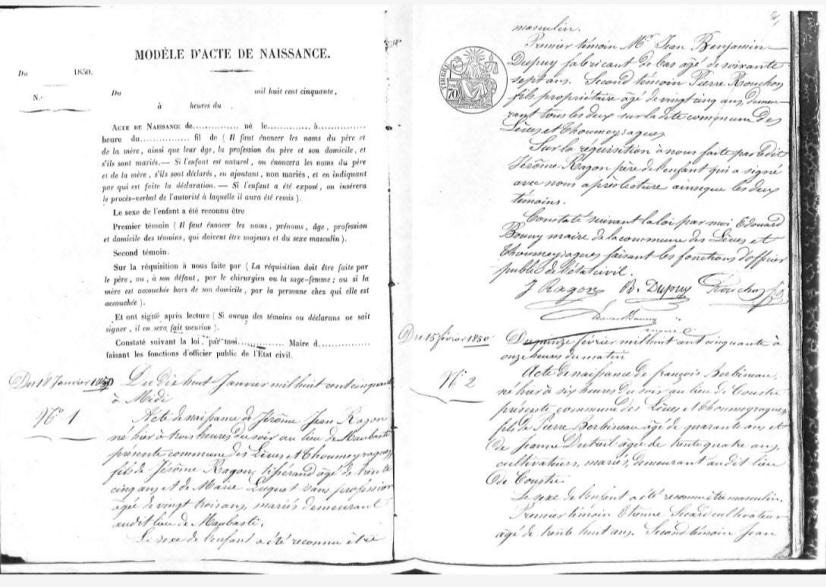 MODÈLE D'ACTE DE NAISSANCE.
Du 1850.
N.°
Du mil huit cent cinquante,
à heures du
ACTE DE NAISSANCE de............ né le............à............
heure du............ fil de ( Il faut énoncer les noms du père et
de la mère, ainsi que leur âge, la profession du père et son domicile, et
s'ils sont mariés.— Si l'enfant est naturel, on énoncera les noms du père
et de la mère, s'ils sont déclarés, en ajoutant, non mariés, et en indiquant
par qui est faite la déclaration. — Si l'enfant a été exposé, on insérera
le procès-verbal de l'autorité à laquelle il aura été remis ).
Le sexe de l'enfant a été reconnu être
Premier témoin ( Il faut énoncer les noms, prénoms, âge, profession
et domicile des témoins, qui doivent être majeurs et du sexe masculin ).
Second témoin.
Sur la réquisition à nous faite par ( La réquisition doit être faite par
le père, ou, à son défaut, par le chirurgien ou la sage-femme; ou si la
mère est accouchée hors de son domicile, par la personne chez qui elle est
accouchée ).
Et ont signé après lecture ( Si aucun des témoins ou déclarans ne sait
signer, il en sera fait mention ).
Constaté suivant la loi, par moi............ Maire d............
faisant les fonctions d'officier public de l'État civil.
Du 18 Janvier 1850
N° 1
Du dix huit Janvier mil huit cent cinquante
à Midi
Acte de naissance de Jérôme Jean Ragon
né hier à trois heures du soir au lieu de
présente commune des Lèves et Thoumeyragues
fils de Jérôme Ragon, tisserand âgé de trente
cinq ans et de Marie sans profession
agée de vingt trois ans, mariés demeurant
audit lieu de
Le sexe de l'enfant a été reconnu être
masculin.
Premier témoin Mr. Jean Benjamin
Dupuy fabricant de bas agé de soixante
sept ans. Second témoin Pierre Rouchon
fils propriétaire âgé de vingt cinq ans demeu-
rant tous les deux sur la dite commune des
Lèves et Thoumeyragues
Sur la réquisition à nous faite par ledit
Jérôme Ragon père de l'enfant qui a signé
avec nous après lecture ainsi que les deux
témoins.
Constaté suivant la loi par moi Edouard
maire de la commune des Lèves et
Thoumeyragues faisant les fonctions d'officier
public de l'état civil.
J Ragon B. Dupuy Rouchon fils
Du 15 février 1850
N° 2
Du quinze février mil huit cent cinquante à
onze heures du matin
Acte de naissance de françois Berbineau
né hier à six heures du soir au lieu de
présente commune des Lèves et Thoumeyragues
fils de Pierre Berbineau âgé de quarante ans et
de Jeanne agée de trente quatre ans,
cultivateurs, mariés, demeurant audit lieu
de
Le sexe de l'enfant a été reconnu être masculin.
Premier témoin Etienne cultivateur
âgé de trente huit ans. Second témoin Jean